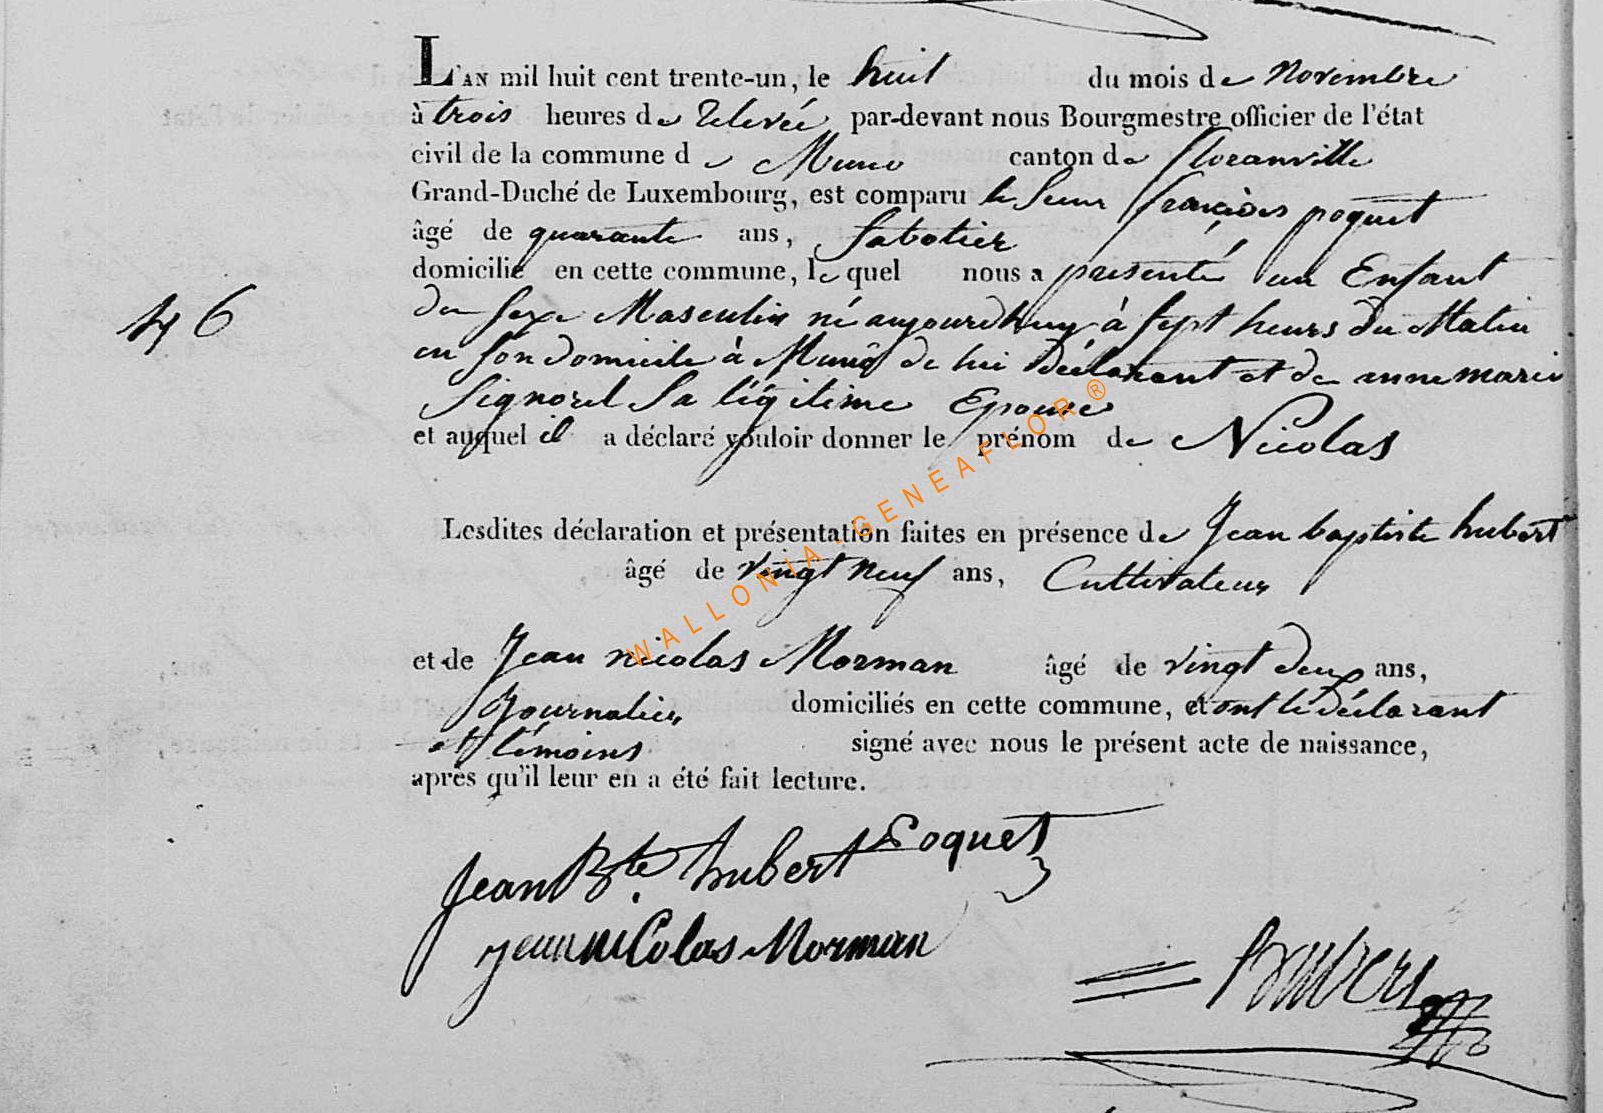 L'AN mil huit cent trente-un, le huit du mois de Novembre
à trois heures de relevée par-devant nous Bourgmestre officier de l'état
civil de la commune de Muno canton de floranville
Grand-Duché de Luxembourg, est comparu le Sieur françois poquet
âgé de quarante ans, Sabotier
domicilié en cette commune, le quel nous a presenté un Enfant
46
du sexe Masculin né aujourdhuy à sept heurs du Matin
en son domicile à Muno de lui déclarant et de anne marie
Signorel Sa légitime Epouse
et auquel il a déclaré vouloir donner le prénom de Nicolas
Lesdites déclaration et présentation faites en présence de Jean baptiste hubert
âgé de vingt neuf ans, Cultivateur
et de Jean nicolas Morman âgé de vingt deux ans,
Journalier domiciliés en cette commune, et ont le déclarant
et témoins signé avec nous le présent acte de naissance,
après qu'il leur en a été fait lecture.
Poquet
Jean Bte. hubert
jean nicolas Morman
WALLONIA-GENEAFLOR®